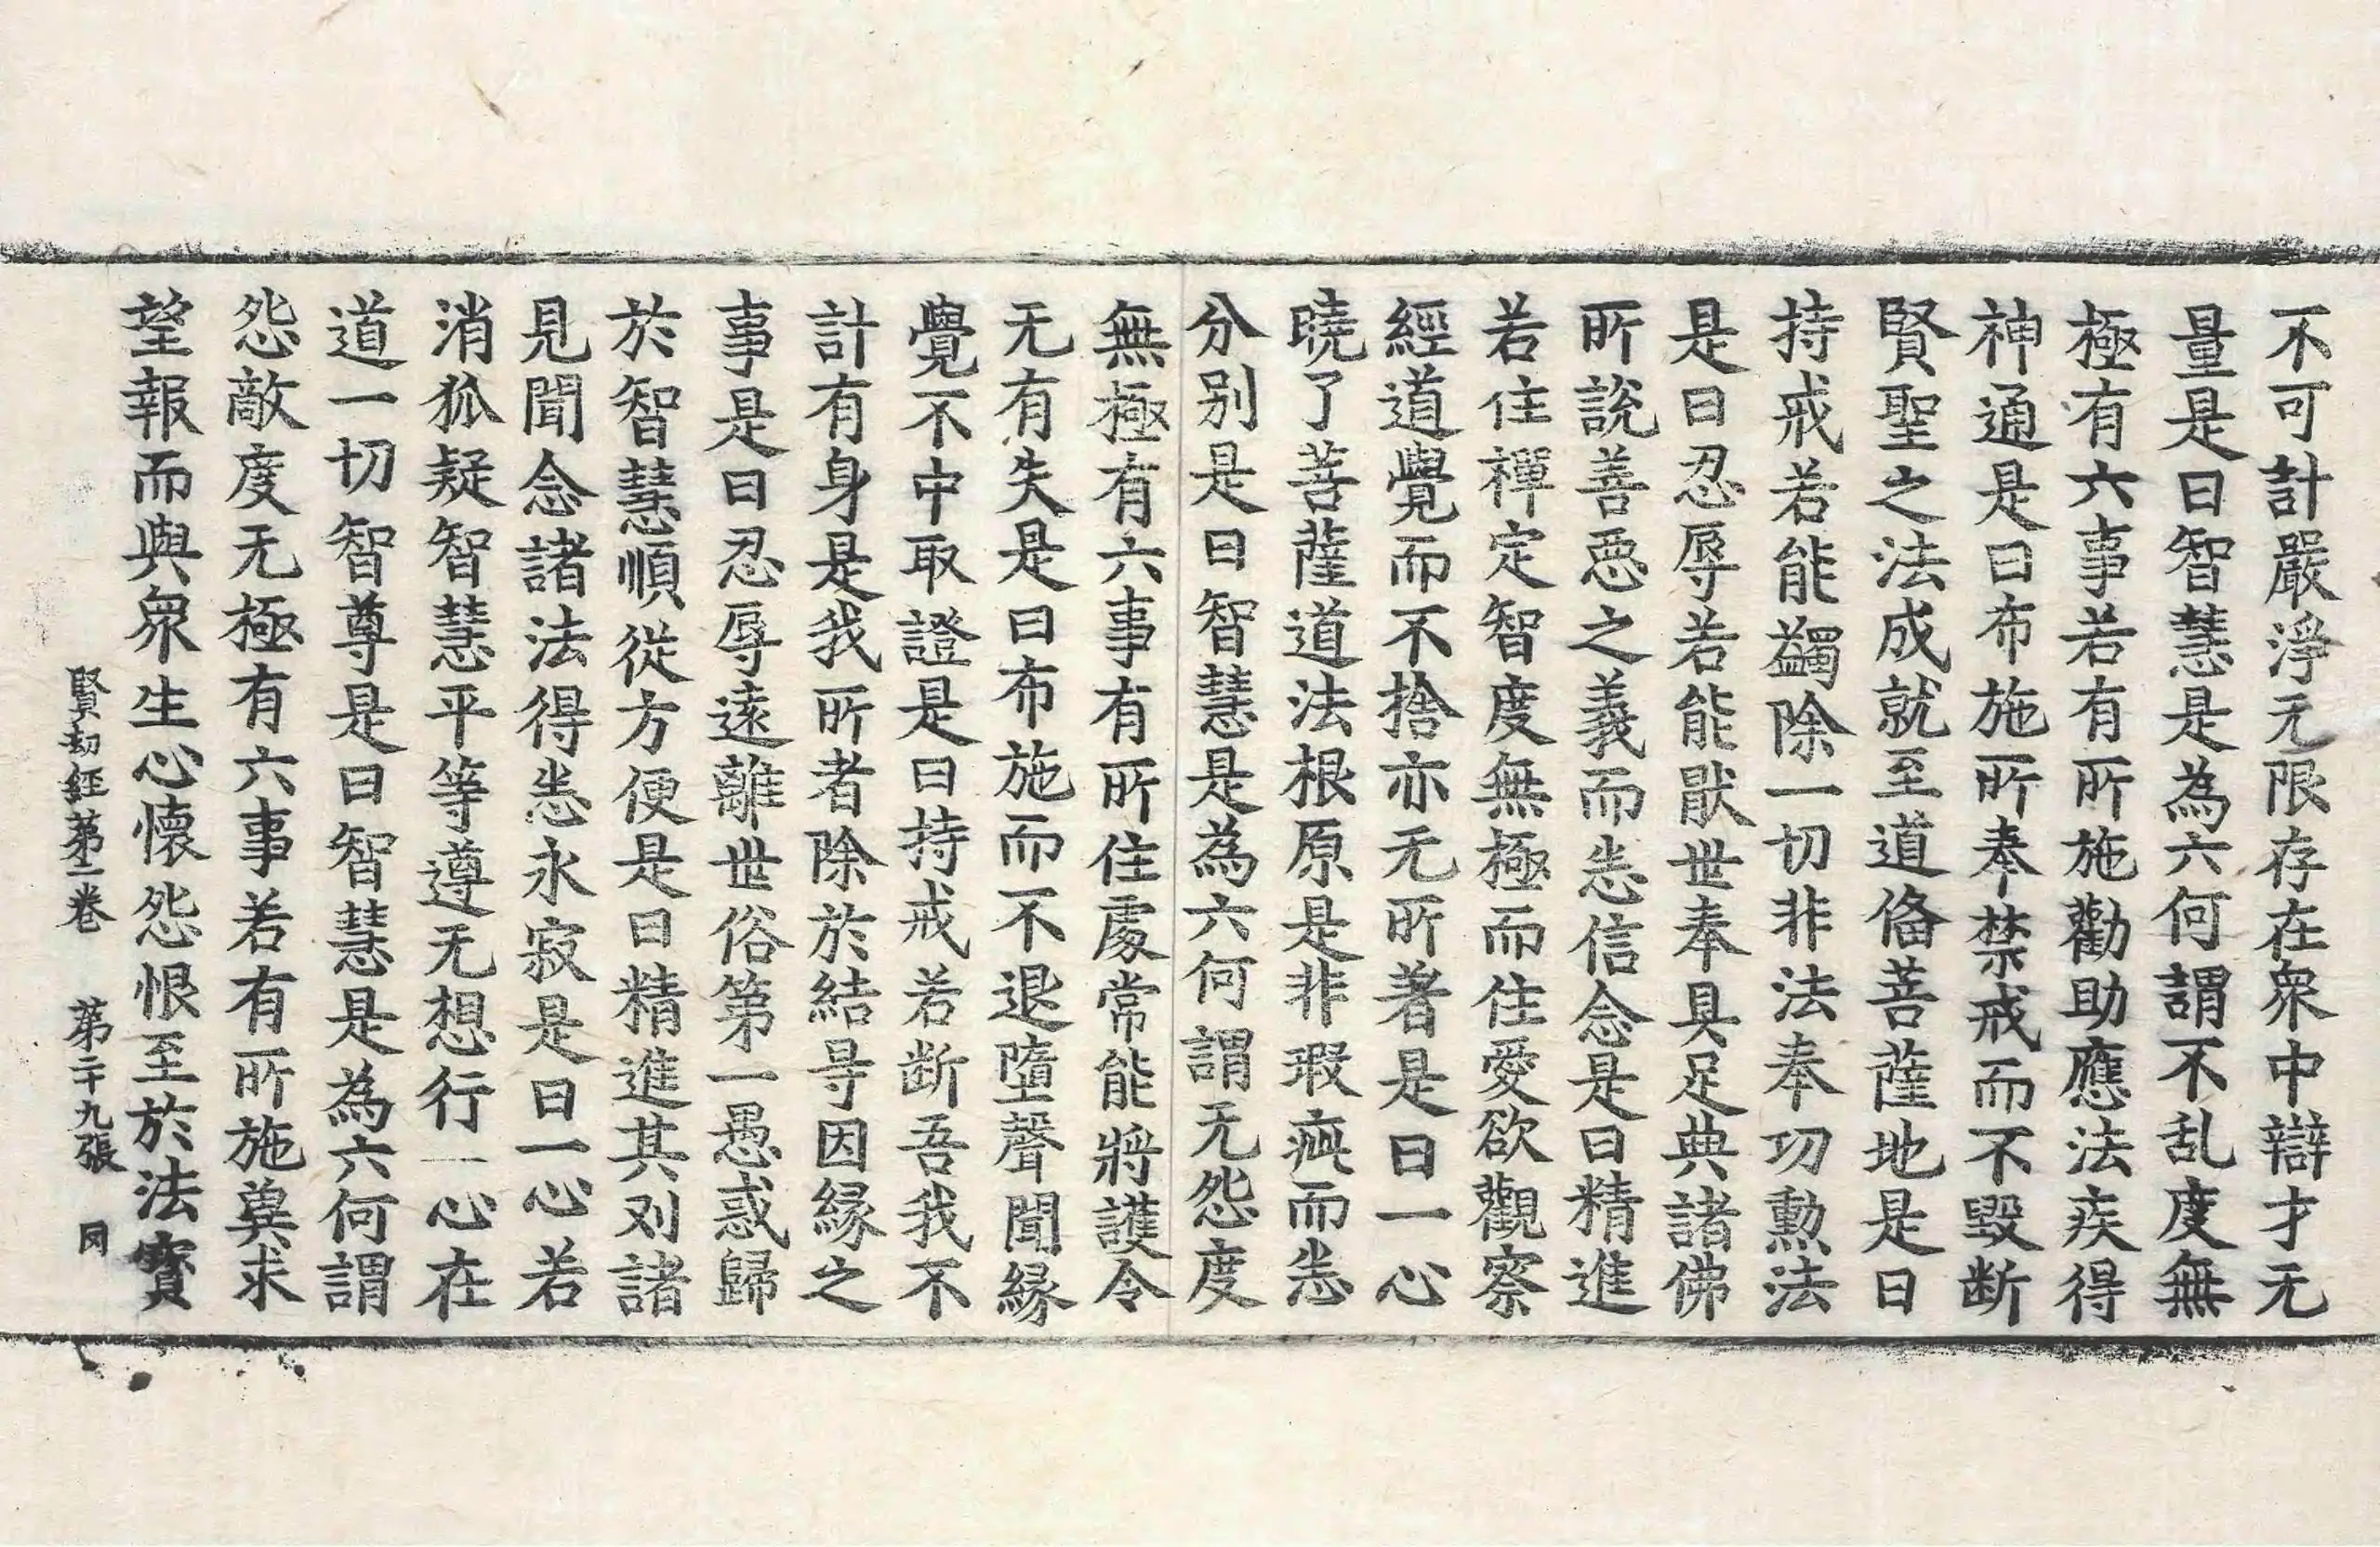 不可計嚴淨无限存在衆中辯才无
量是曰智慧是為六何謂不乱度無
極有六事若有所施勸助應法疾得
神通是曰布施所奉禁戒而不毀断
賢聖之法成就至道俻菩薩地是曰
持戒若能蠲除一切非法奉功勲法
是曰忍辱若能猒世奉具足典諸佛
所說善惡之義而悉信念是曰精進
若住禪定智度無極而住愛欲觀察
經道覺而不捨亦无所著是曰一心
曉了菩薩道法根原是非瑕疵而悉
分别是曰智慧是為六何謂无怨度
無極有六事有所住處常能將護令
无有失是曰布施而不退墮聲聞縁
覺不中取證是曰持戒若断吾我不
計有身是我所者除於結㝵因縁之
事是曰忍辱遠離世俗第一愚惑歸
於智慧順從方便是曰精進其刈諸
見聞念諸法得悉永寂是曰一心若
消狐疑智慧平等遵无想行一心在
道一切智尊是曰智慧是為六何謂
怨敵度无極有六事若有所施冀求
望報而與衆生心懐怨恨至於法寳
賢劫經第二卷 第二十九張 同